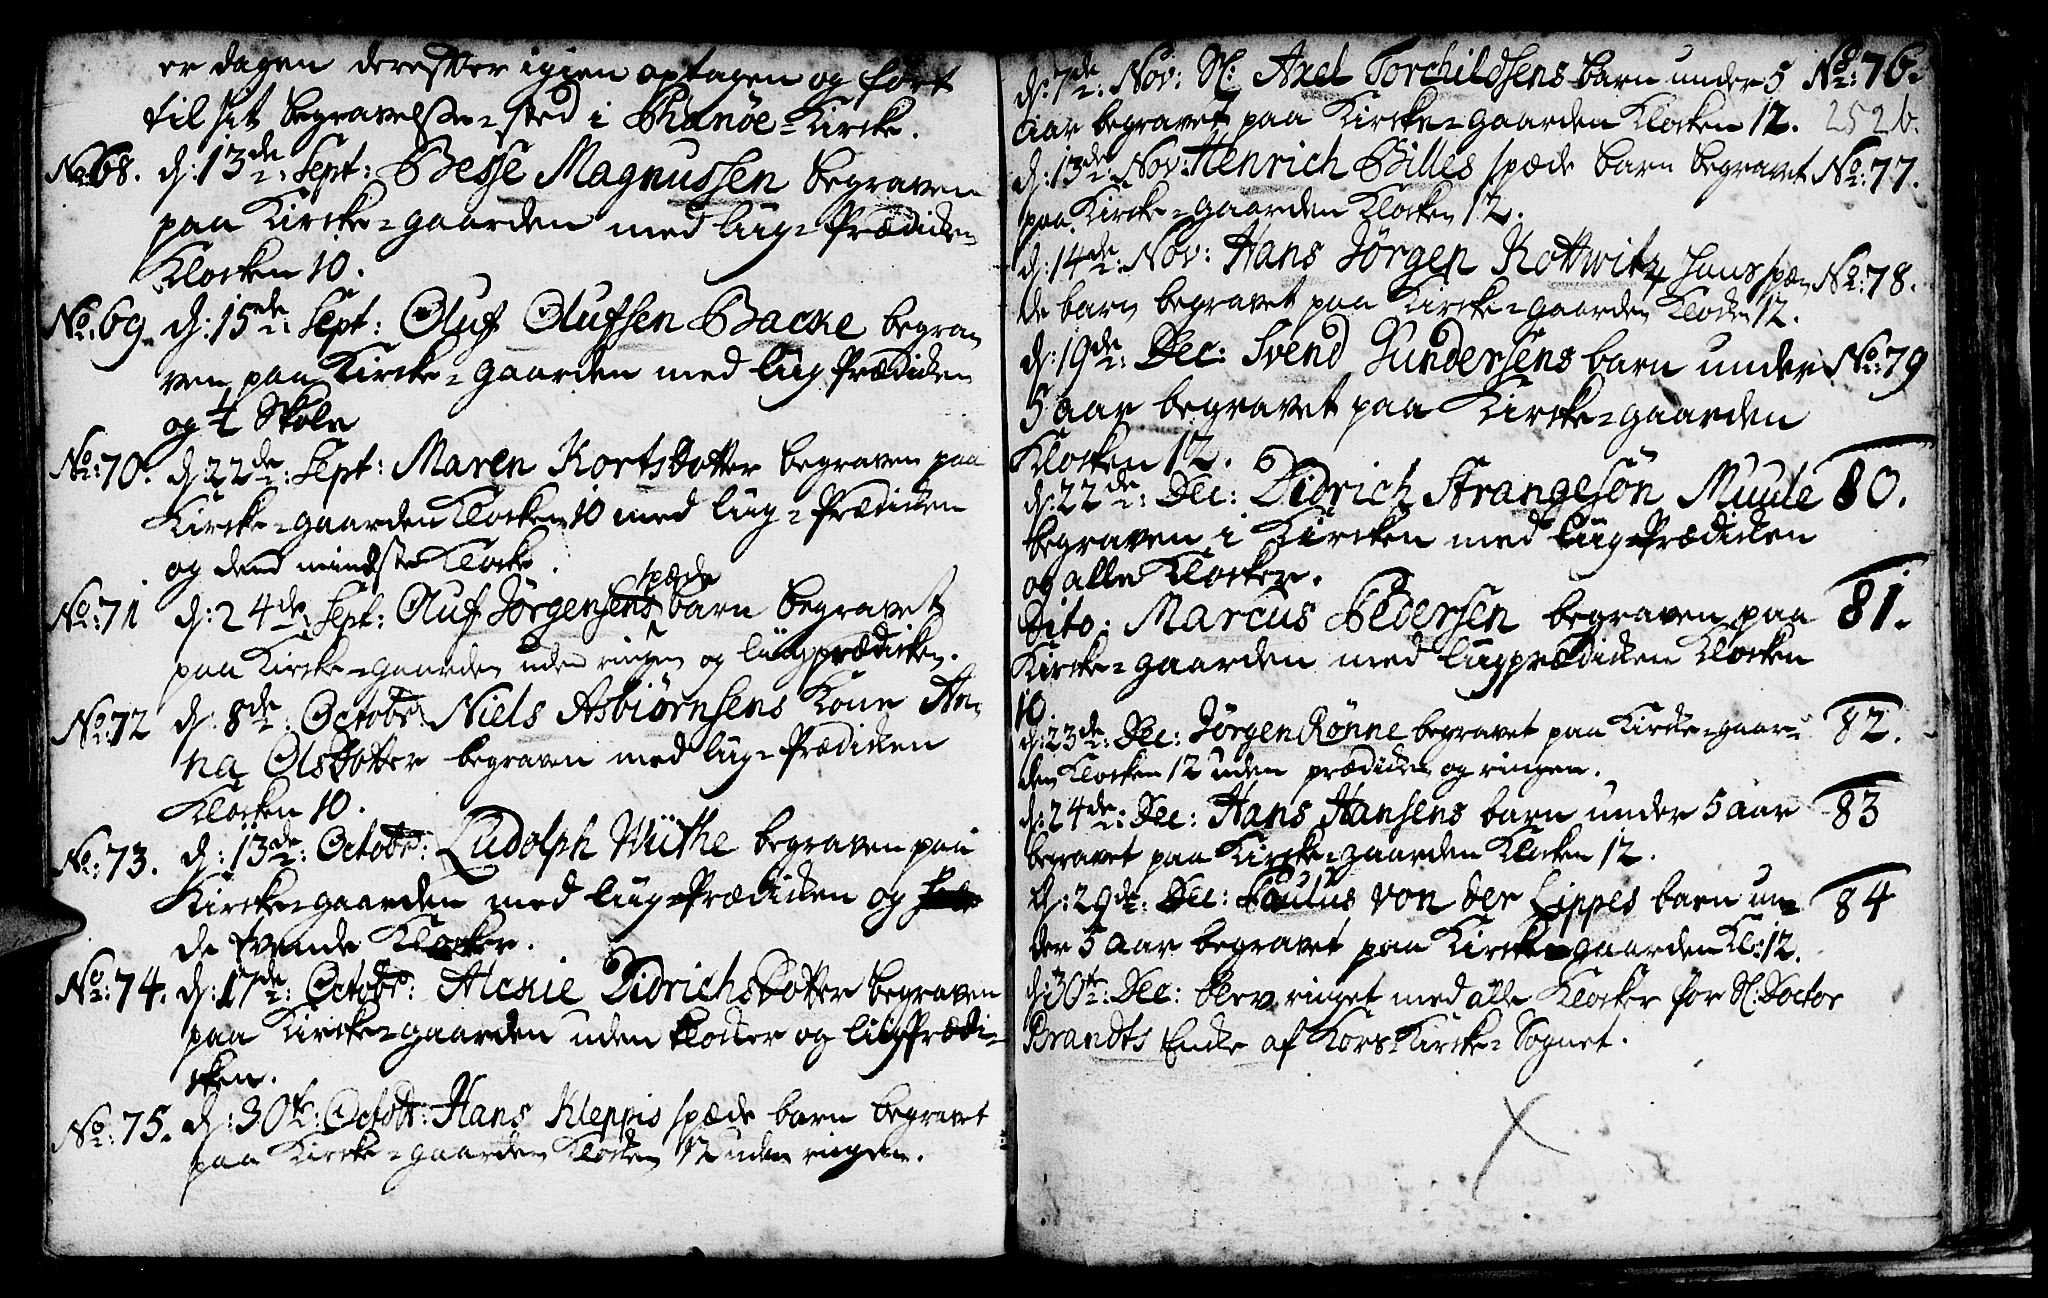 er dagen derefter igien optagen og ført
til sit begravelse=sted i Thanøe=Kircke.
No: 68. d: 13de: Sept: Besse Magnussen begraven
paa Kircke=gaarden med liig=Prædicken
Klocken 10.
No: 69. d: 15de: Sept: Oluf Olufsen Backe begra=
ven paa Kircke=gaarden med liig Prædicken
og 4 Skole
No: 70. d: 22de: Sept: Maren Kortsdotter begraven paa
Kircke=gaarden Klocken 10 med liig=Prædicken
og dend mindste Klocke.
spæde
No: 71 d: 24de: Sept: Oluf Jørgensens barn begravet
paa Kircke=gaarden uden ringen og liigprædicken.
No: 72 d. 8de: Octobr: Niels Asbiørnsens Kone An=
na Olsdotter begraven med liig=Prædicken
Klocken 10.
No: 73. d: 13de: Octobr: Ludolph Wüthe begraven paa
Kircke=gaarden med liig=Prædicken og
de tvende Klocker.
No: 74. d: 17de: Octobr: Alexie Didrichsdotter begraven
paa Kircke=gaarden uden klocker og liigPrædi=
cken.
No: 75. d: 30te: Octobr: Hans Kleppis spæde barn begravet
paa Kircke=gaarden Klocken 12 uden ringen.
d: 7de: Nov: Sl: Axel Torchildsens barn under 5 No: 76.
aar begravet paa Kircke=gaarden Klocken 12. 2526.
d: 13de: Nov: Henrich Billes spæde barn begravet No: 77.
paa Kircke=gaarden Klocken 12.
d: 14de: Nov: Hans Jørgen Kottwitz hans spæ= No: 78.
de barn begravet paa Kircke=gaarden Klocken 12.
d: 19de: Dec: Svend Gundersens barn under No: 79
5 aar begravet paa Kircke=gaarden
Klocken 12.
d: 22de: Dec: Didrich Strangesøn Muule 80.
begraven i Kircken med liig=Prædicken
og alle Klocker.
Dito. Marcus Pedersen begraven paa 81.
Kircke=gaarden med liigprædicken Klocken
10.
d: 23de: Dec: Jørgen Rønne begravet paa Kircke=gaar= 82.
den Klocken 12 uden prædicken og ringen.
d: 24de: Dec: Hans Hansens barn under 5 aar 83
begravet paa Kircke=gaarden Klocken 12.
d: 29de: Dec: Paulus von der Lippes barn un= 84
der 5 aar begravet paa Kircke=gaarden Kl: 12.
d: 30te: Dec: blev ringet med alle Klocker for Sl: Doctor
Brandts Encke af Kors=Kircke=Sognet.